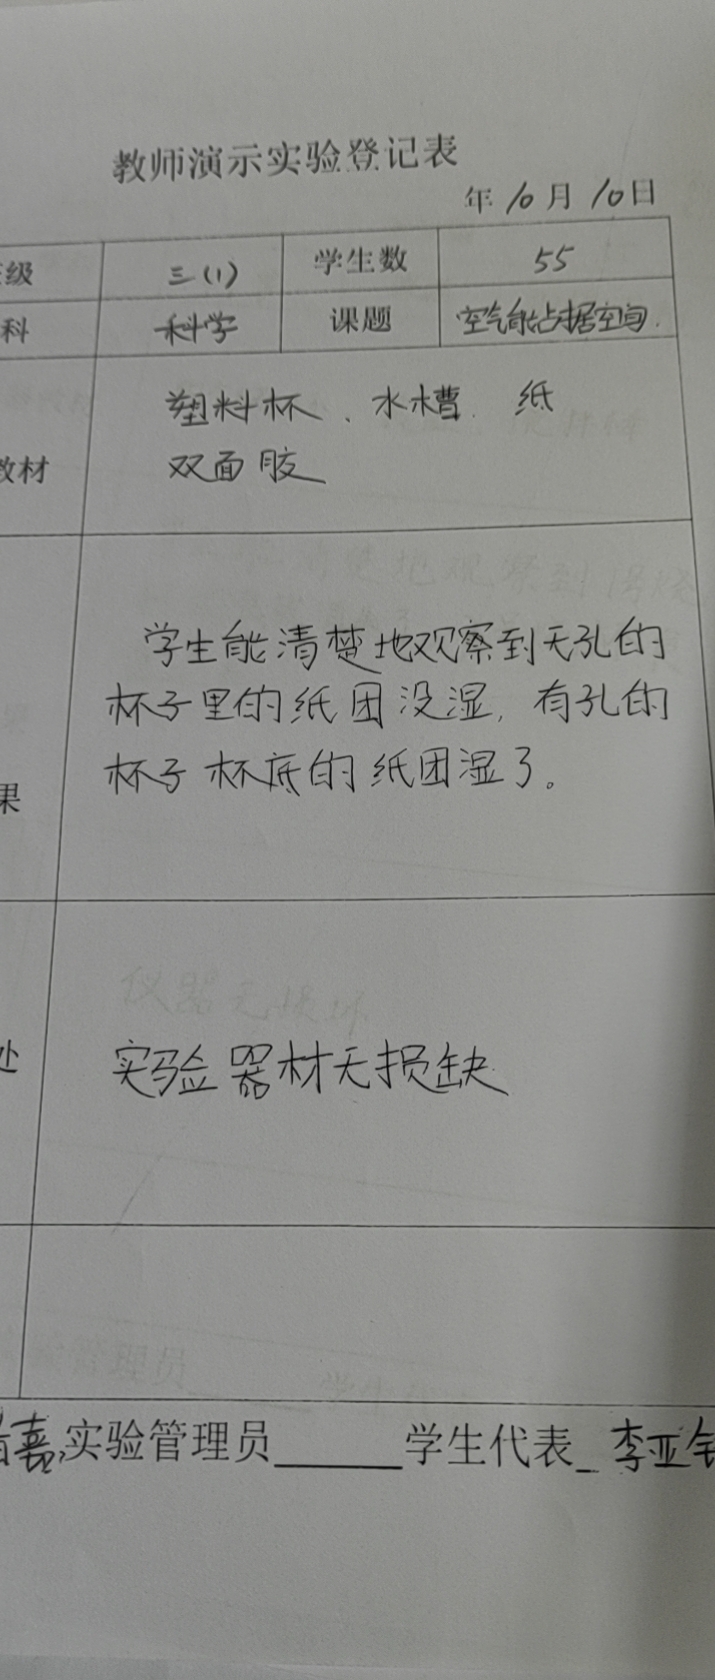 教师演示实验登记表
年10月10日
级 三(1) 学生数 55
科 科学 课题 空气能占据空间.
塑料杯、水槽、纸
教材 双面胶
学生能清楚地观察到无孔的
杯子里的纸团没湿,有孔的
杯子杯底的纸团湿了。
果
处 实验器材无损缺
嘉 实验管理员______学生代表_李亚